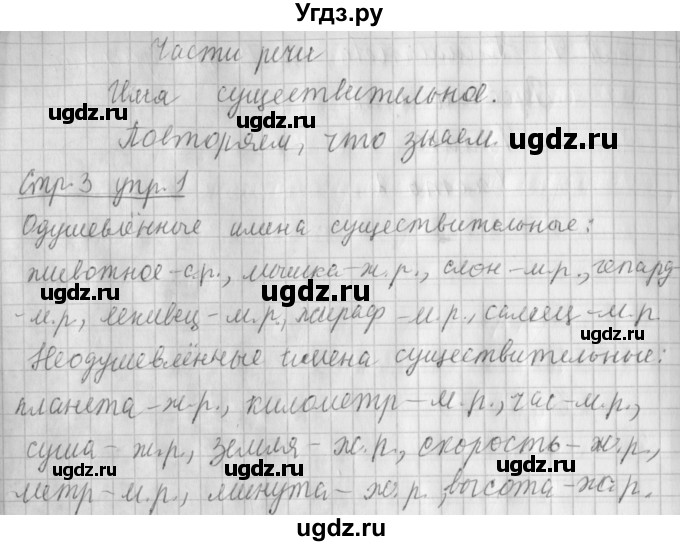 Угдз.ру
Части речи
Имя существительное.
Повторяем, что знаем.
Стр. 3 упр. 1
Одушевлённые имена существительные:
животное-с.р., мышка-ж.р., слон-м.р., гепард-
-м.р., ленивец-м.р., жираф-м.р., самец-м.р.
Неодушевлённые имена существительные:
планета-ж.р., километр-м.р., час-м.р.,
суша-ж.р., земля-ж.р., скорость-ж.р.,
метр-м.р., минута-ж.р., высота-ж.р.
ugdz.ru
ugdz.ru
ugdz.ru
ugdz.ru
ugdz.ru
ugdz.ru
ugdz.ru
ugdz.ru
ugdz.ru
ugdz.ru
ugdz.ru
ugdz.ru